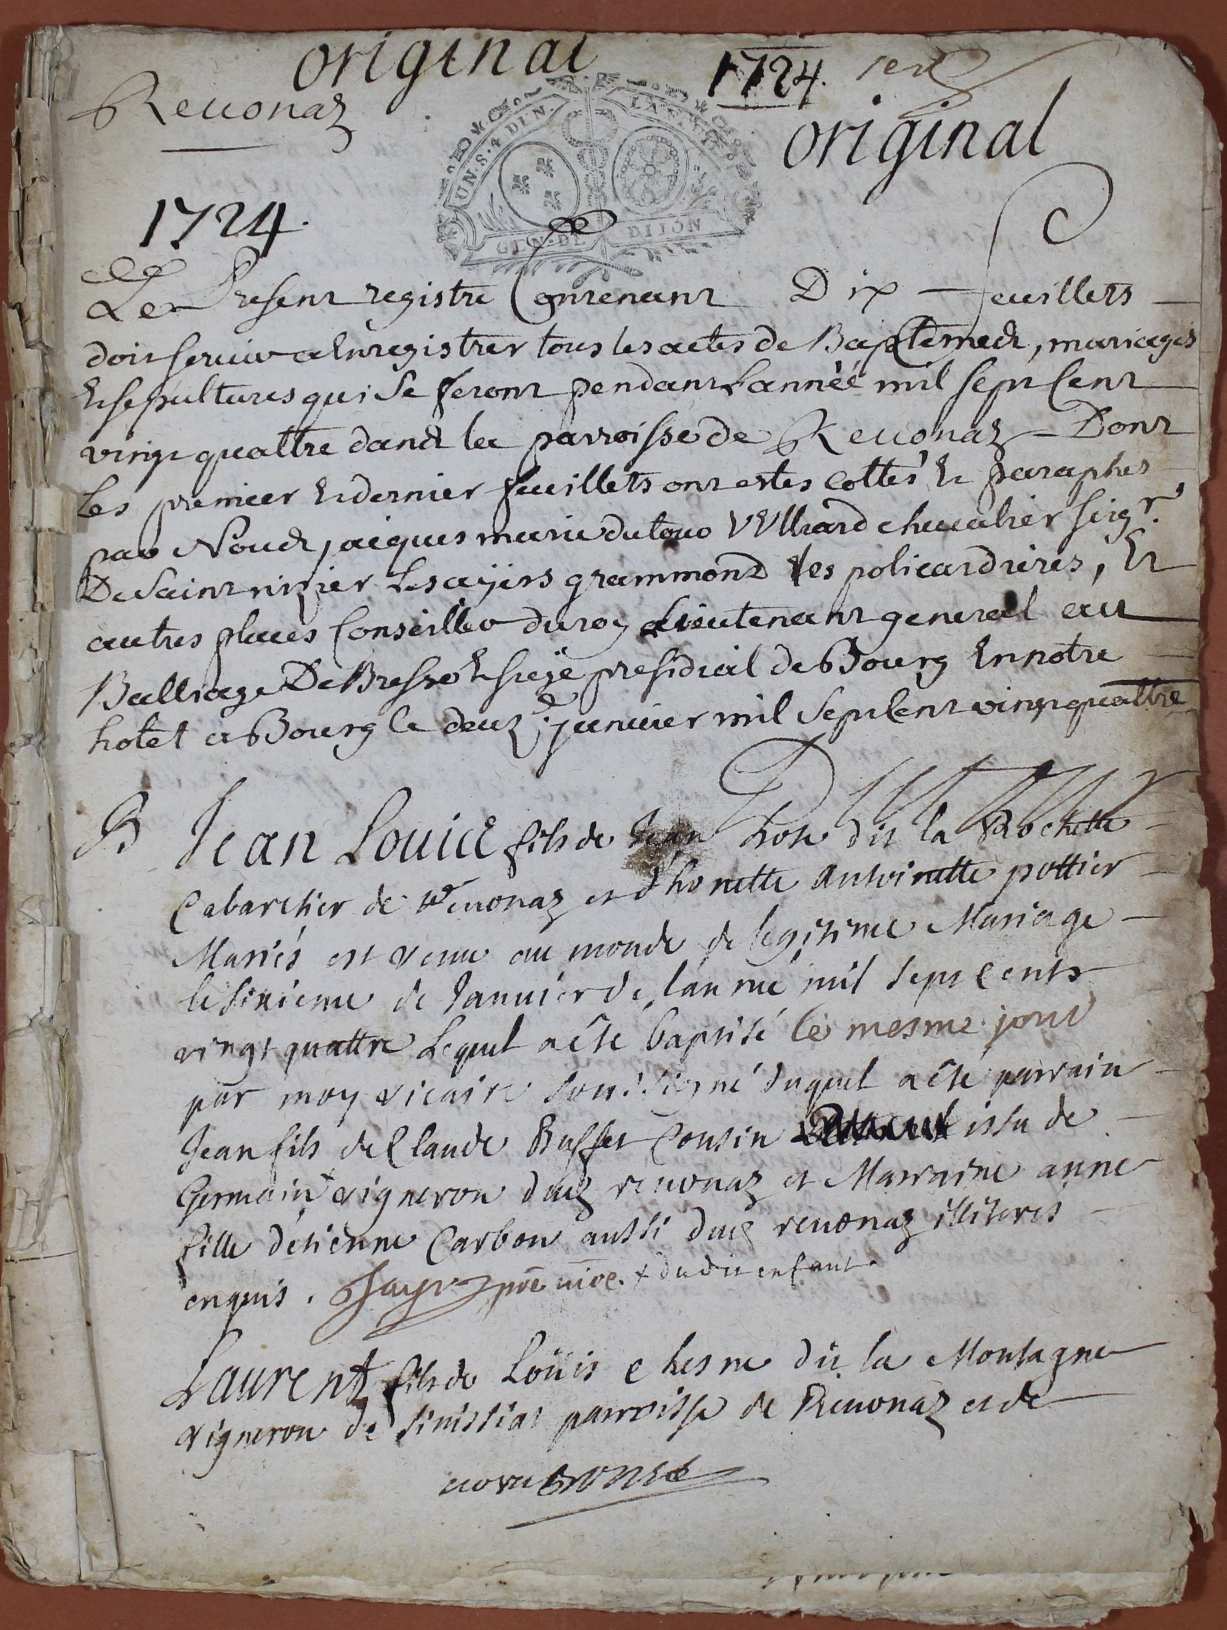 original
1724.
Reuonaz
original
UN.S.4 DEN.
GEN. DE DIJON
1724.
Le Present registre Contenant Dix feuillets
doit seruir a Enregistrer tous les actes de Baptemes, mariages
Et sepultures qui Se feront pendant L'année mil sept Cent
vingt quattre dans la parroisse de Reuonaz Dont
Les premier Et dernier feuillets ont estes Cottés Et paraphes
par Nous, jacques marie duTour VVlliard cheualier seigr.
De Saint nizier Les ayers grammond les policardieres, Et
autres places Conseiller du roy Lieutenant general au
Balliage De Bresse Et siege presidial de Bourg En notre
hotel a Bourg le deux janvier mil Sept Cent vingt quattre
B
Jean Louice fils de Jean dit la Rochette
Cabaretier de reuonaz et d'honette antoinette pottier
Mariés est venu au monde de legitime Mariage
le sixieme de Januier de l'année mil sept cents
vingt quattre Lequel a êté baptisé le mesme jour
par moy vicaire soussigné duquel a êté parrain
Jean fils de Claude Buffet Cousin issu de
Germain + vigneron dud reuonaz et Marraine anne
fille d'etienne Carbon aussi dud reuonaz illiteres
enquis. Jayr pre vire. + dudit enfant.
Laurent fils de Loüis chesne dit la Montagne
vigneron de Sinissiat parroisse de Reuonaz et de